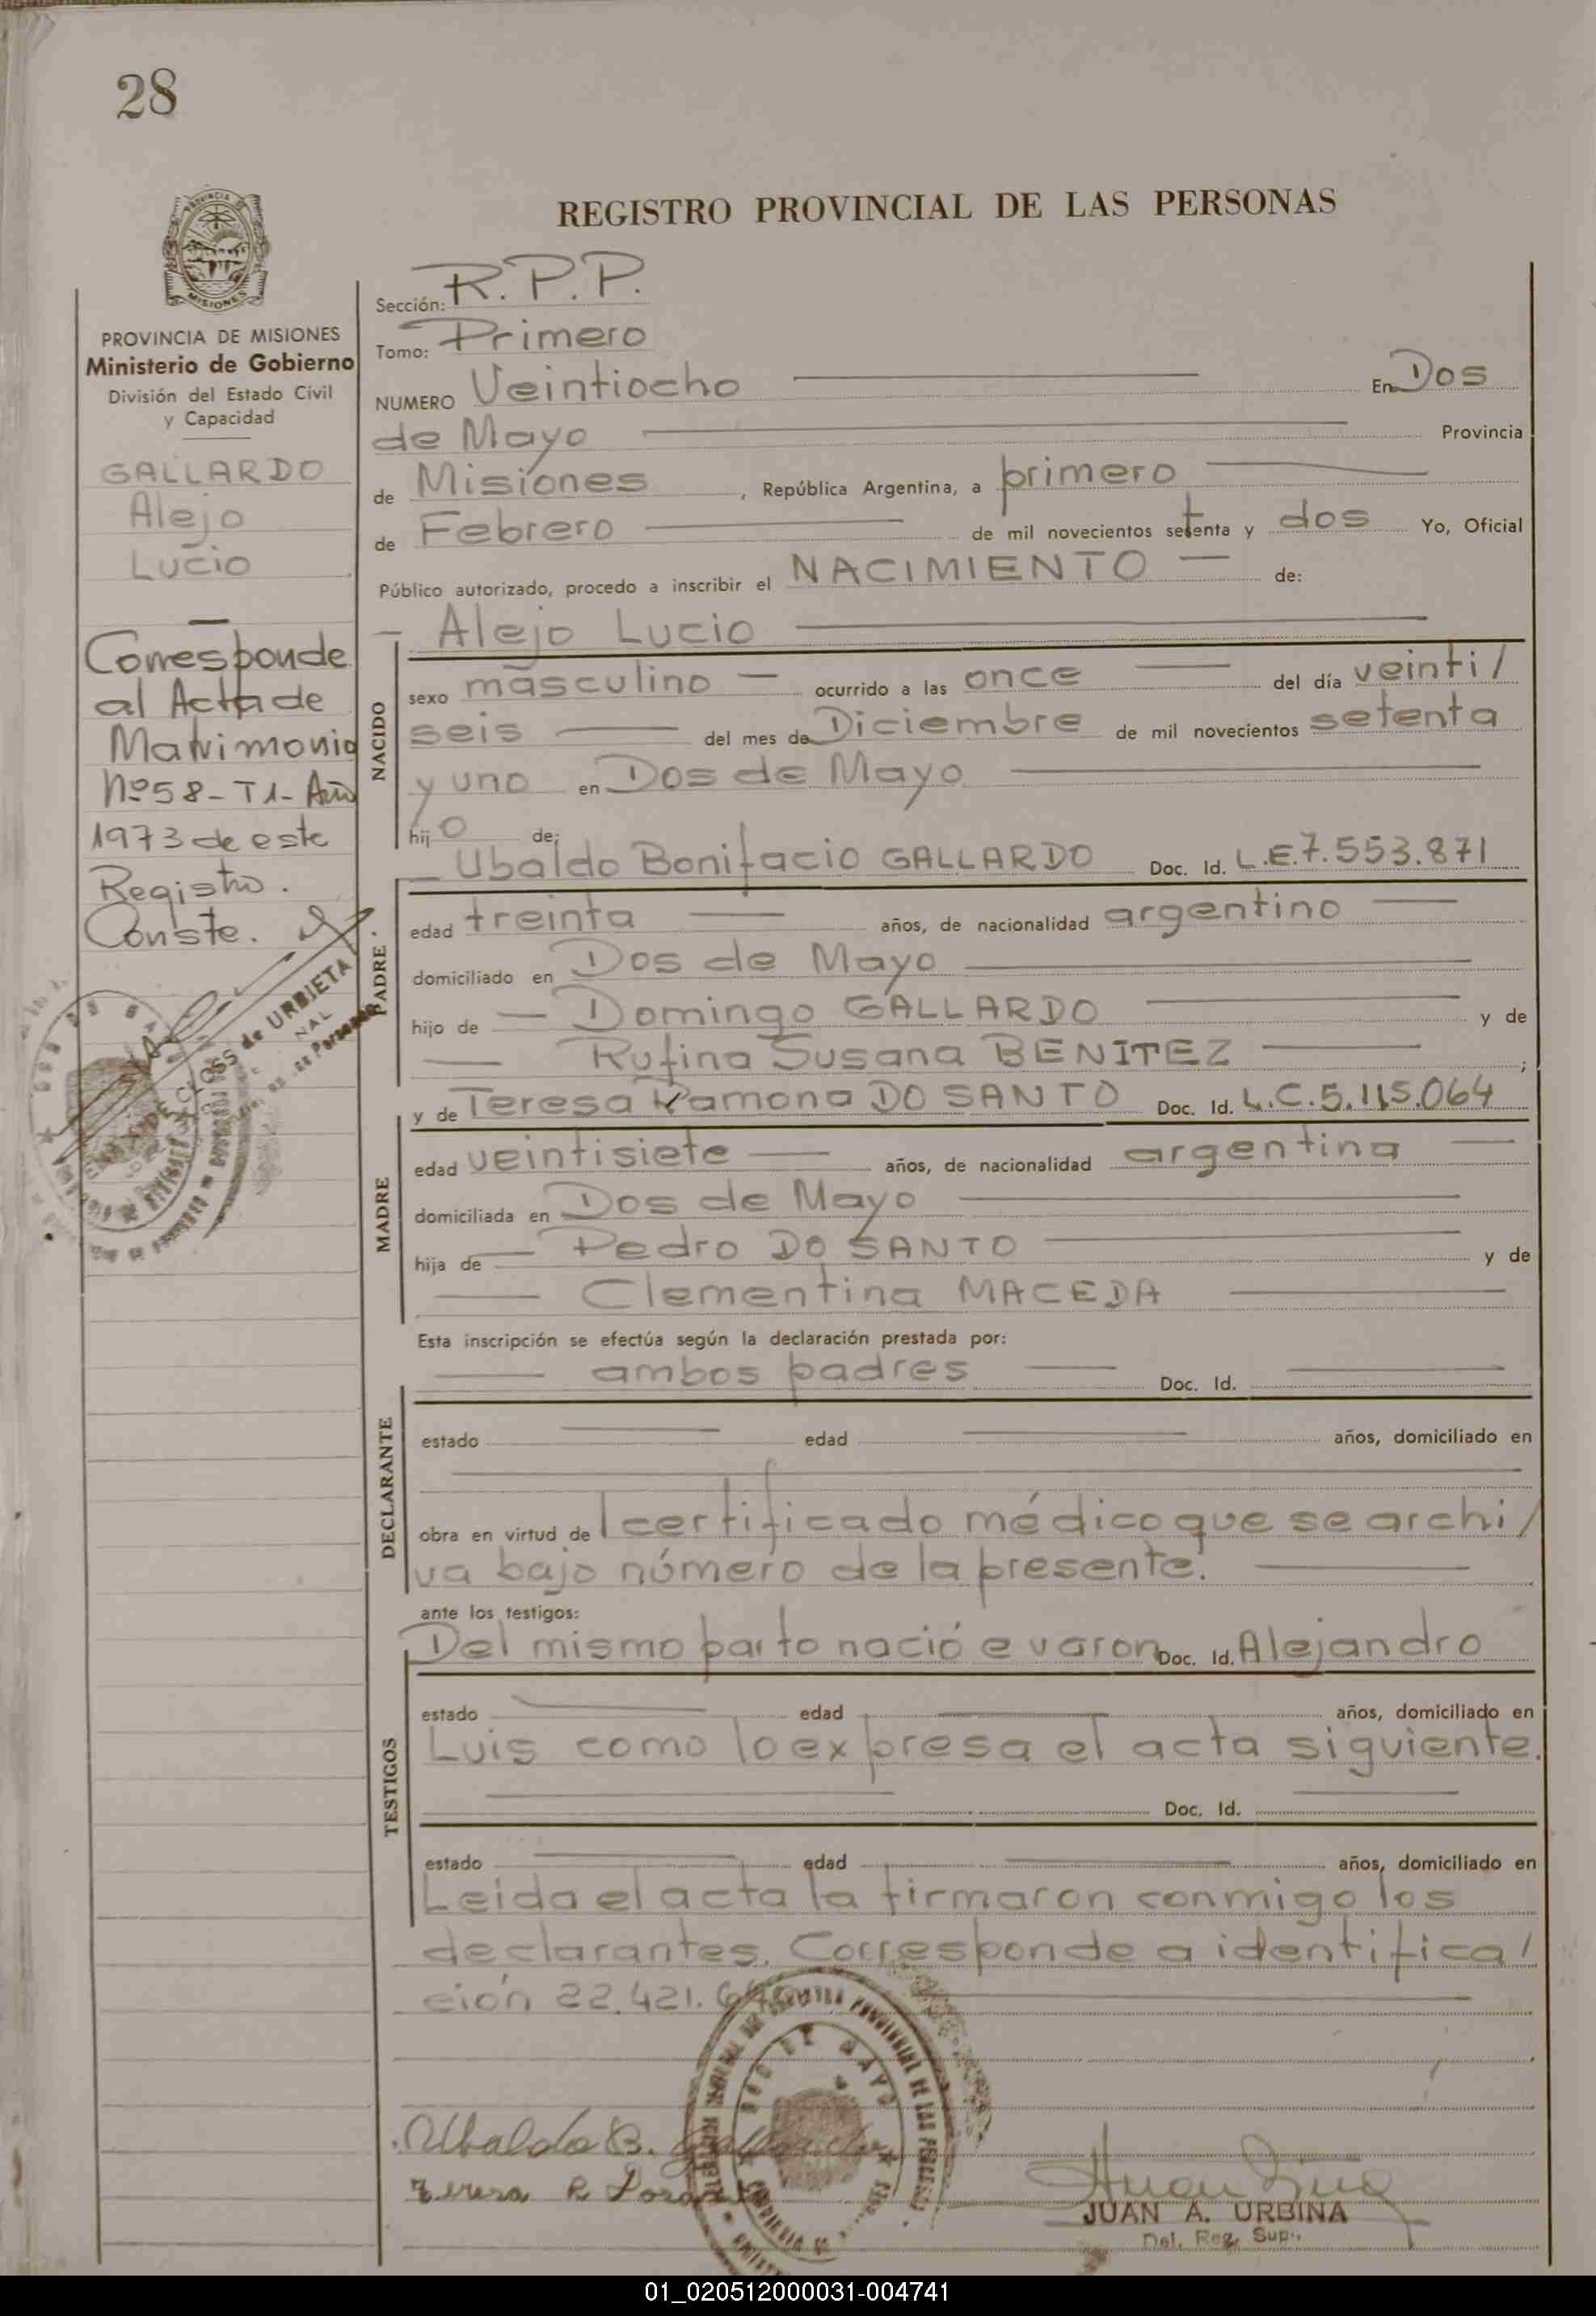 28
PROVINCIA DE
MISIONES
REGISTRO PROVINCIAL DE LAS PERSONAS
PROVINCIA DE MISIONES
Ministerio de Gobierno
División del Estado Civil
y Capacidad
GALLARDO
Alejo
Lucio
Corresponde
al Acta de
Matrimonio
Nº 58 - T 1 - Año
1973 de este
Registro.
Conste.
Sección: R. P. P.
Tomo: Primero
NUMERO Veintiocho En Dos
de Mayo Provincia
de Misiones , República Argentina, a primero
de Febrero de mil novecientos setenta y dos Yo, Oficial
Público autorizado, procedo a inscribir el NACIMIENTO — de:
— Alejo Lucio
NACIDO
sexo masculino — ocurrido a las once del día veinti/
seis del mes de Diciembre de mil novecientos setenta
y uno en Dos de Mayo
hijo de:
Ubaldo Bonifacio GALLARDO Doc. Id. L.E. 7.553.871
PADRE
edad treinta años, de nacionalidad argentino
domiciliado en Dos de Mayo
hijo de — Domingo GALLARDO y de
Rufina Susana BENITEZ ;
y de Teresa Ramona DO SANTO Doc. Id. L.C. 5.115.064
MADRE
edad veintisiete años, de nacionalidad argentina
domiciliada en Dos de Mayo
hija de — Pedro DO SANTO y de
Clementina MACEDA
Esta inscripción se efectúa según la declaración prestada por:
ambos padres Doc. Id.
DECLARANTE
estado edad años, domiciliado en
obra en virtud de certificado médico que se archi/
va bajo número de la presente.
ante los testigos:
Del mismo parto nació e varon Doc. Id. Alejandro
TESTIGOS
estado edad años, domiciliado en
Luis como lo expresa el acta siguiente.
Doc. Id.
estado edad años, domiciliado en
Leida el acta la firmaron conmigo los
declarantes. Corresponde a identifica/
ción 22.421.
DOS DE MAYO
Ubaldo B. Gallardo
Teresa R
JUAN A. URBINA
Del. Reg. Sup.
01_020512000031-004741